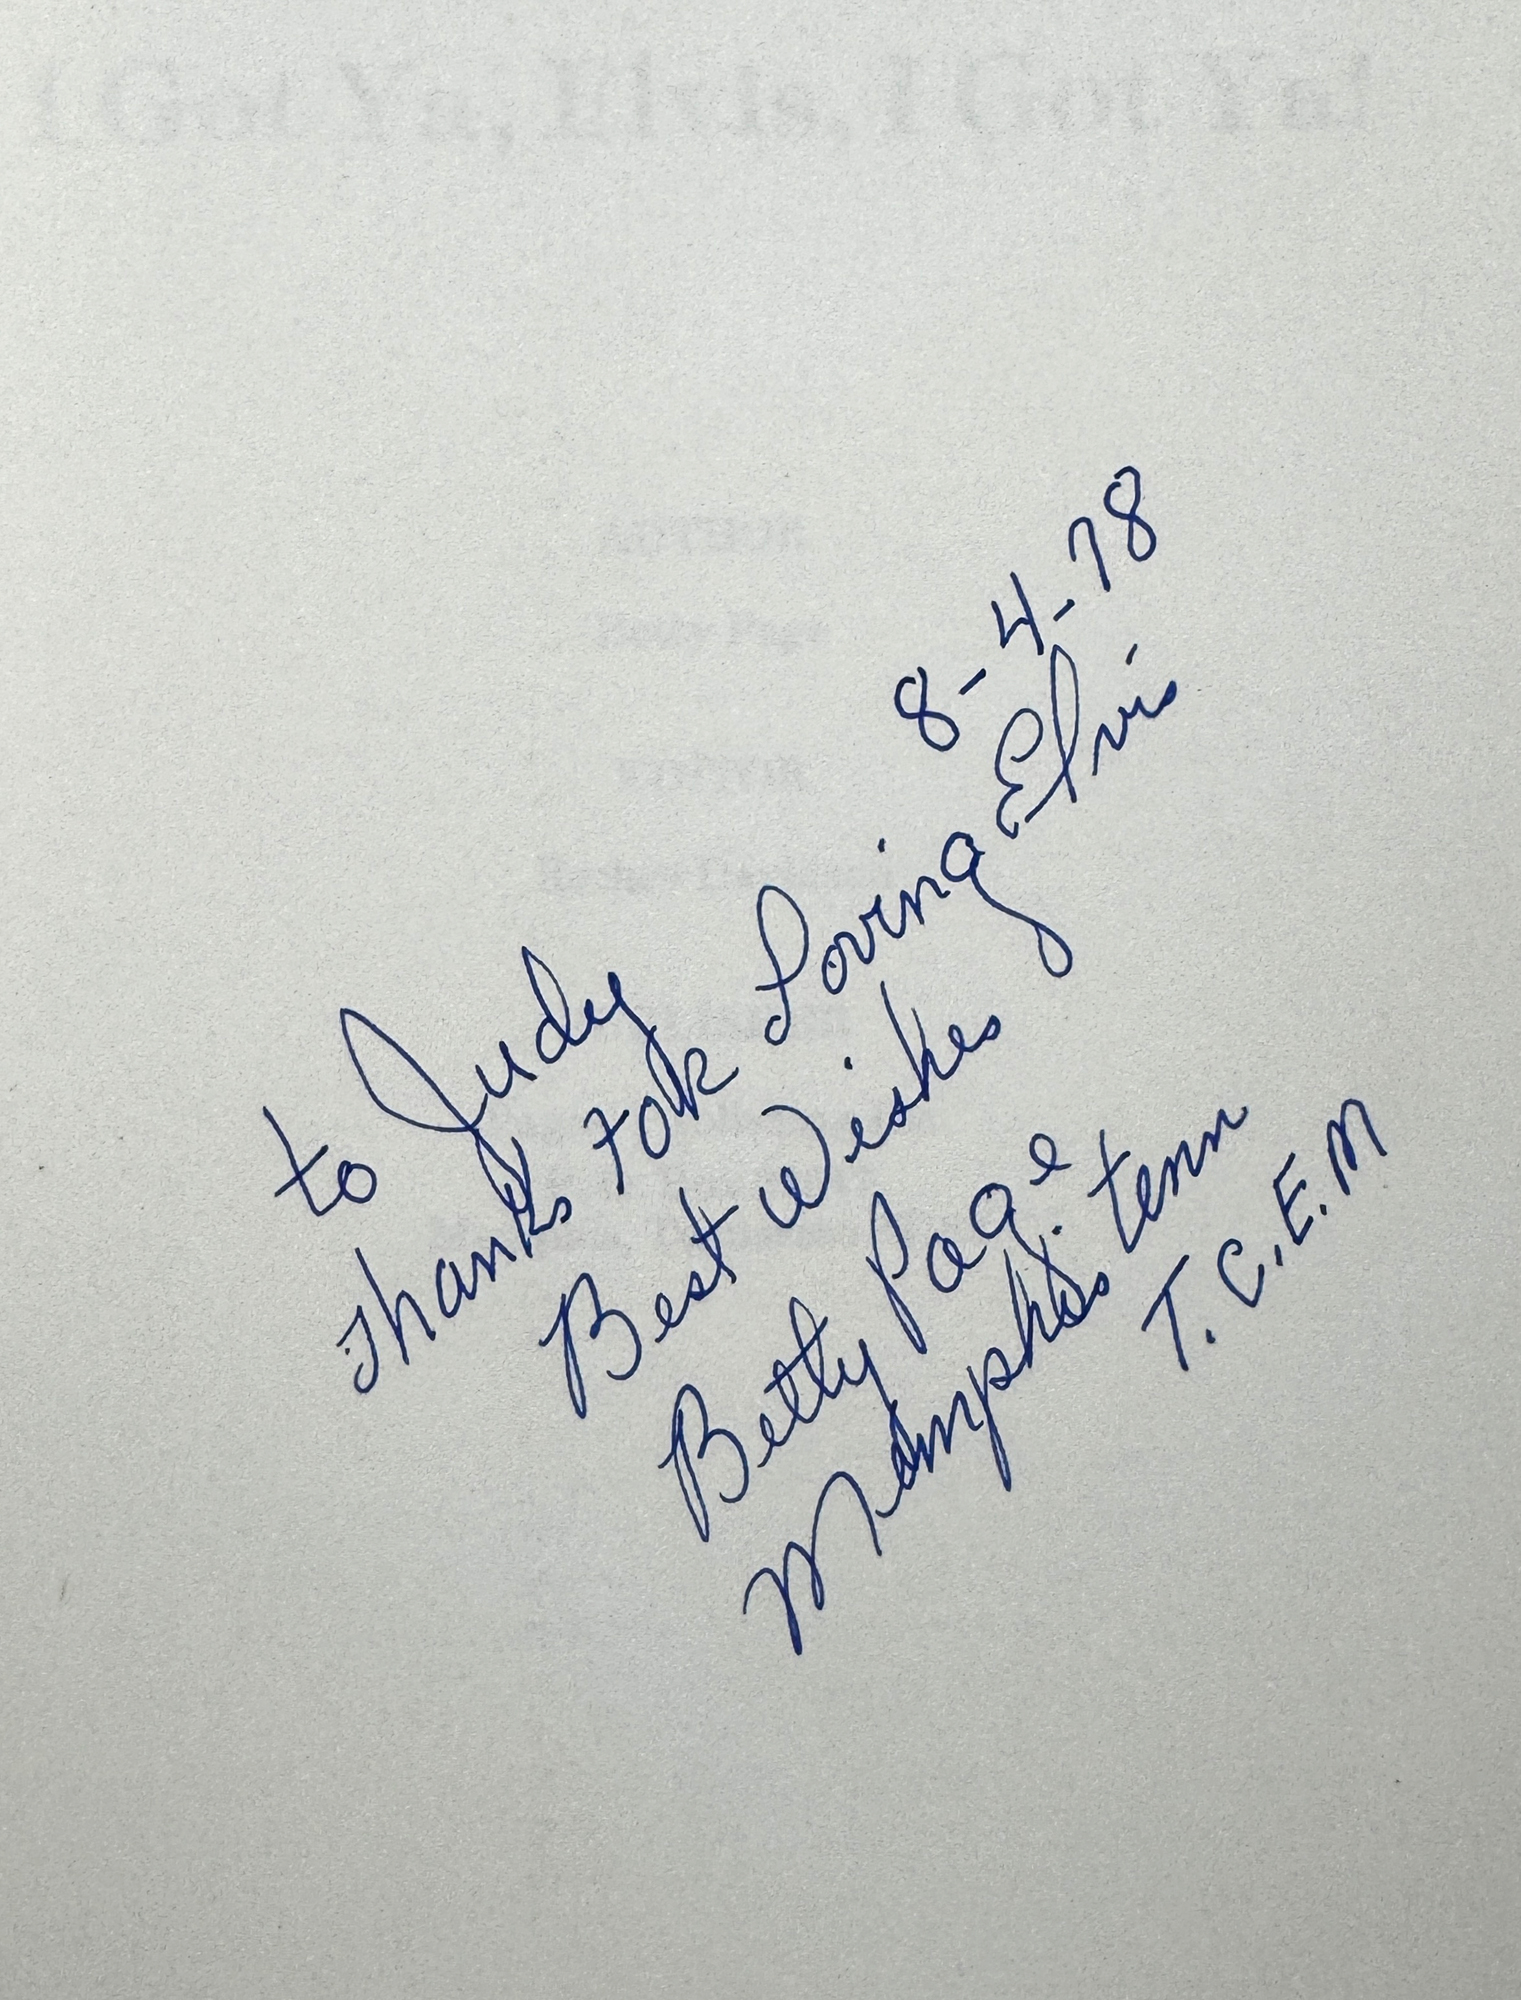 I Got Ya, Elvis, I Got Ya!
8-4-78
to Judy
Thanks FoR Loving Elvis
Best Wishes
Betty Page
Memphis. tenn
T.C.E.M